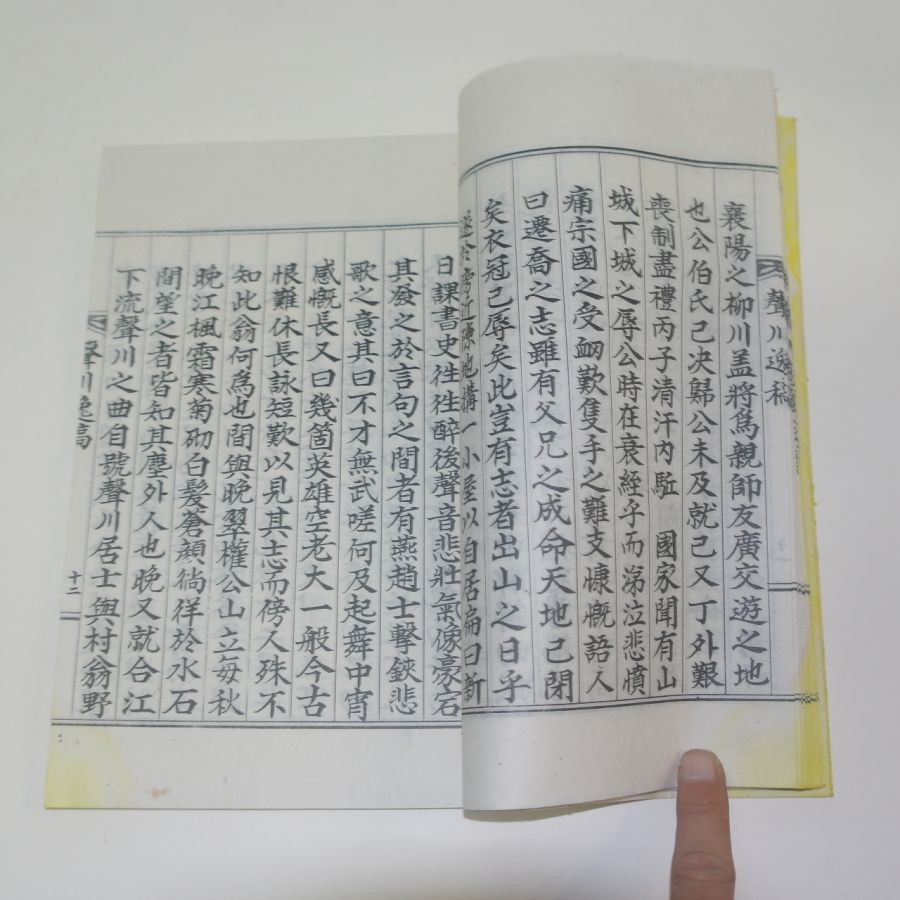 聲川逸稿
襄陽之柳川盖將爲親師友廣交遊之地
也公伯氏已決歸公未及就已又丁外艱
喪制盡禮丙子清汗內駈 國家聞有山
城下城之辱公時在哀絰乎而涕泣悲憤
痛宗國之受衂歎隻手之難支慷慨語人
曰遷喬之志雖有父兄之成命天地已閉
矣衣冠已辱矣此豈有志者出山之日乎
遂於旁近隙地搆一小屋以自居扁曰新
日課書史徃徃醉後聲音悲壯氣像豪宕
其發之於言句之間者有燕趙士擊鋏悲
歌之意其曰不才無武嗟何及起舞中宵
感慨長又曰幾箇英雄空老大一般今古
恨難休長詠短歎以見其志而傍人殊不
知此翁何爲也間與晚翠權公山立每秋
晚江楓霜寒菊砌白髮蒼顔徜徉於水石
間望之者皆知其塵外人也晚又就合江
下流聲川之曲自號聲川居士與村翁野
聲川逸稿
十三